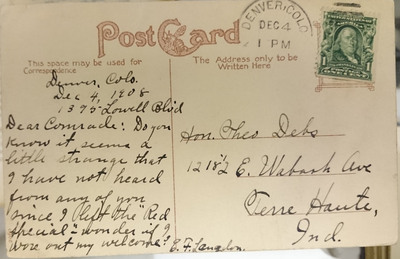 Post Card
This space may be used for
Correspondence
The Address only to be
Written Here
DENVER, COLO.
DEC 4
1 PM
Denver, Colo.
Dec 4, 1908
1375 Lowell Blvd
Dear Comrade: Do you
know it seems a
little strange that
I have not heard
from any of you
since I left the "Red
Special" - wonder if I
wore out my welcome?
E. F. Langdon.
Hon. Theo Debs
1218½ E. Wabash Ave
Terre Haute,
Ind.